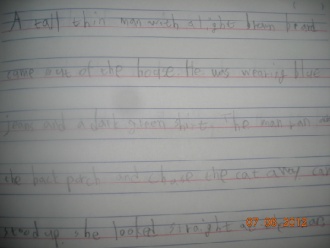 A tall thin man with a light brown beard
came out of the house He was wearing blue
jeans and a dark green shirt. The man ran
the back porch and chase the cat away
stood up she looked straight at the